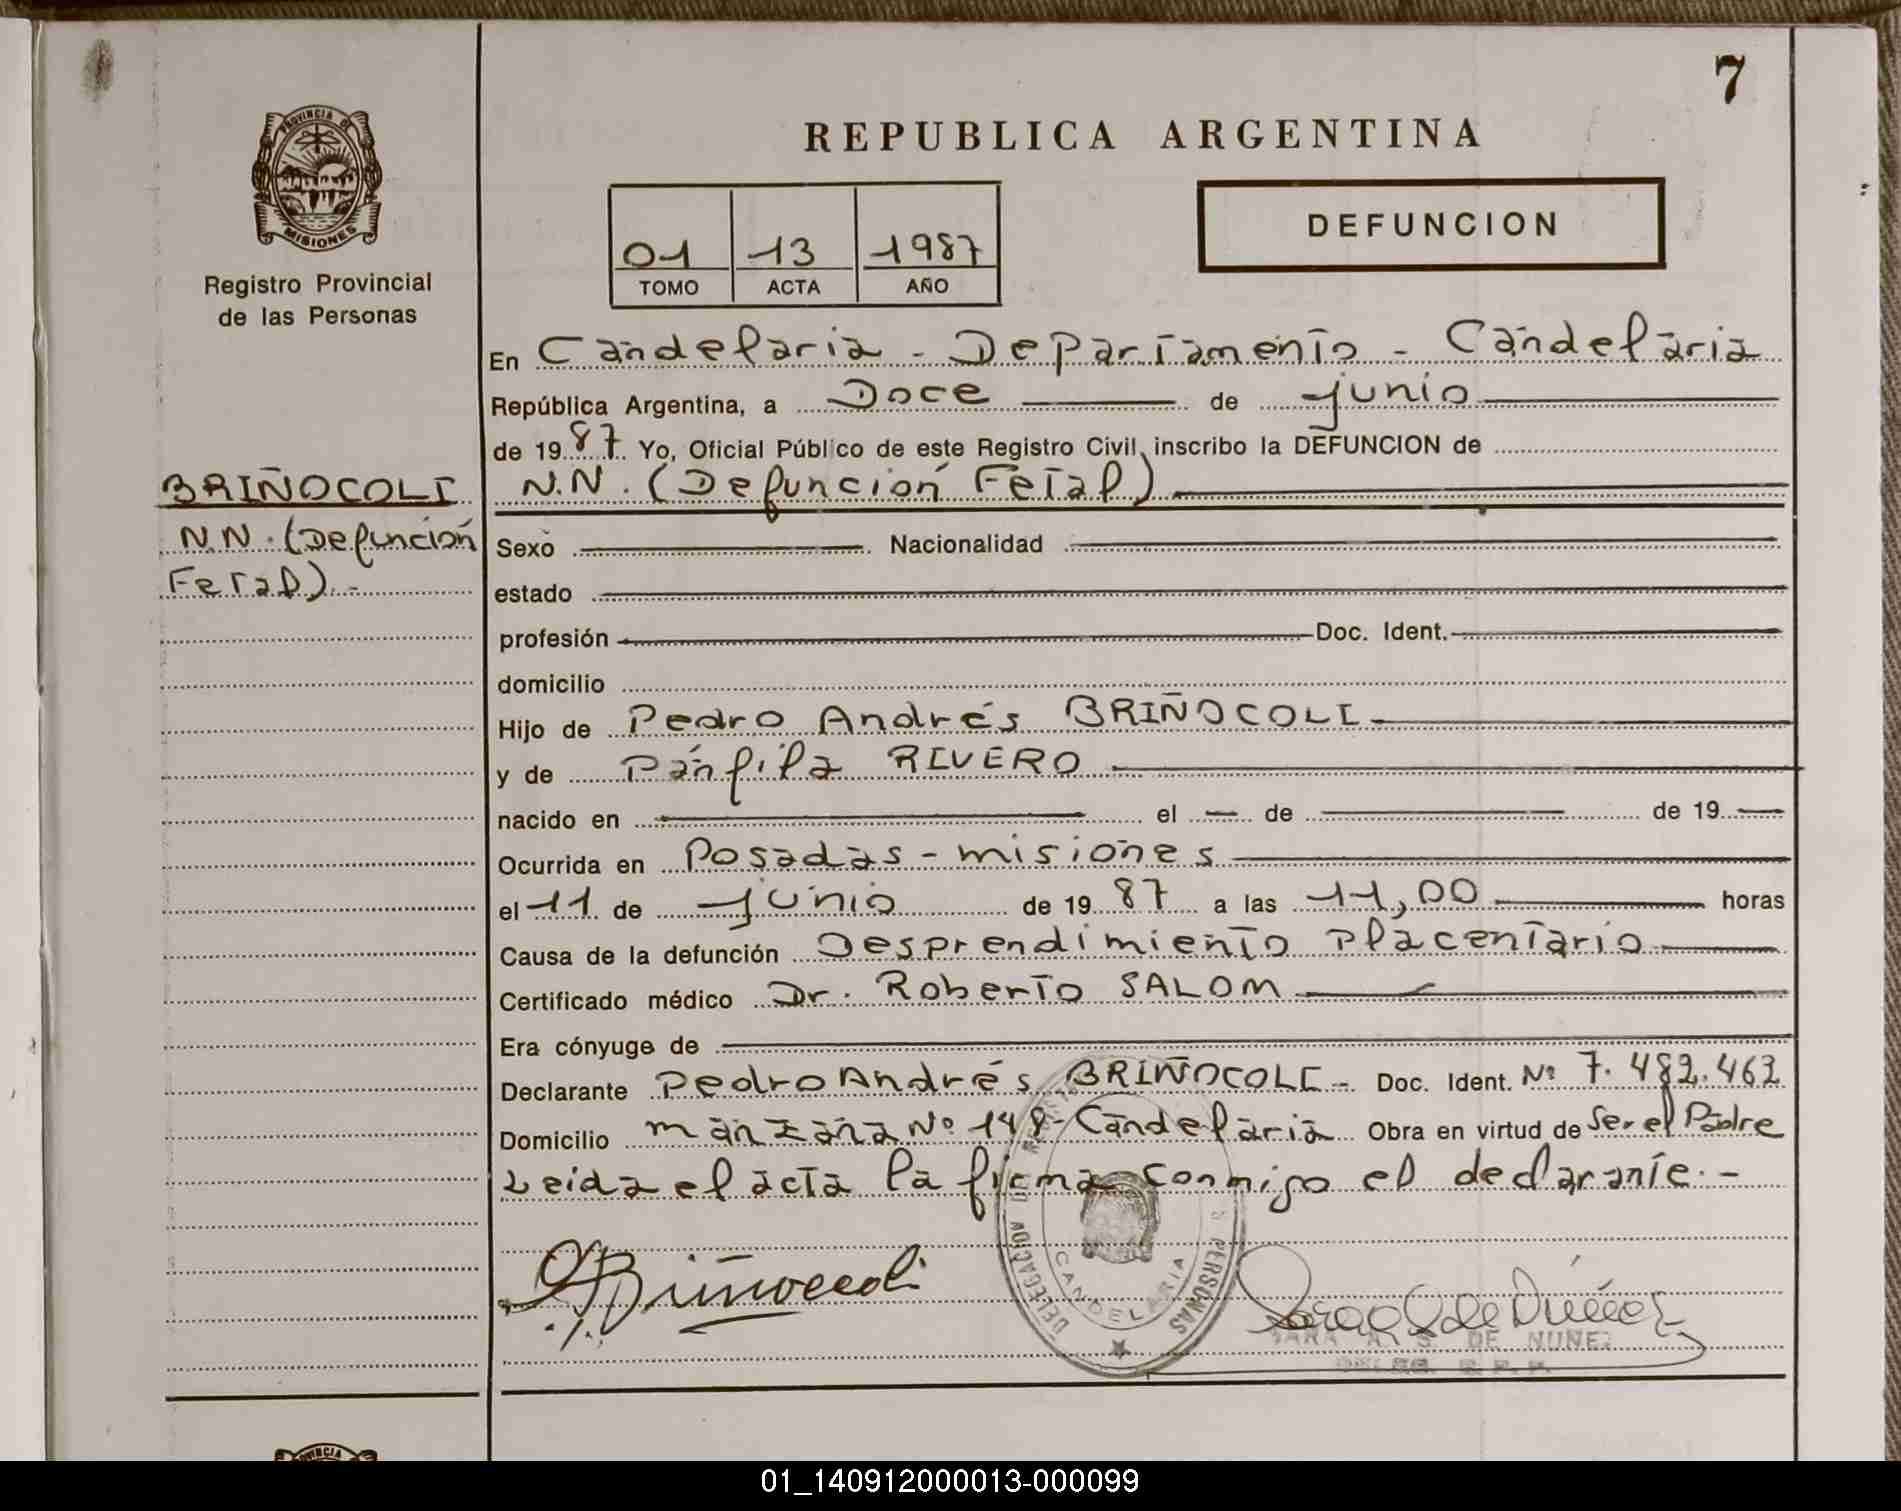 7
PROVINCIA DE
MISIONES
Registro Provincial
de las Personas
REPUBLICA ARGENTINA
01 13 1987
TOMO ACTA AÑO
DEFUNCION
En Candelaria - Departamento - Candelaria
República Argentina, a Doce de junio
de 1987. Yo, Oficial Público de este Registro Civil, inscribo la DEFUNCION de
BRIÑOCOLI
N.N. (Defunción Fetal)
N.N. (Defunción
Fetal).-
Sexo Nacionalidad
estado
profesión Doc. Ident.
domicilio
Hijo de Pedro Andrés BRIÑOCOLI
y de Pánfila RIVERO
nacido en el — de de 19
Ocurrida en Posadas - misiones
el 11 de junio de 1987 a las 11,00 horas
Causa de la defunción Desprendimiento Placentario
Certificado médico Dr. Roberto SALOM
Era cónyuge de
Declarante Pedro Andrés BRIÑOCOLI - Doc. Ident. Nº 7.482.462
Domicilio manzana Nº 148 - Candelaria Obra en virtud de Ser el Padre
Leida el acta la firma conmigo el declarante.-
Briñoccoli
DELEGACION
PERSONAS
CANDELARIA
SARA A. S. DE NUÑEZ
PROVINCIA
01_140912000013-000099